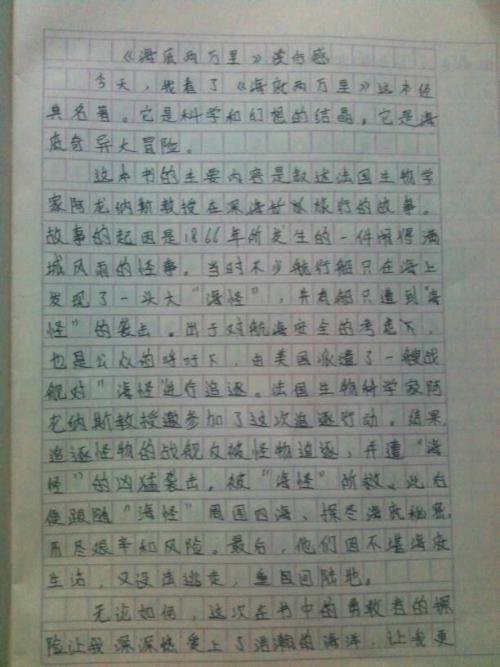 《海底两万里》读后感
今天，我看了《海底两万里》这本经
典名著。它是科学和幻想的结晶，它是海
底奇异大冒险。
这本书的主要内容是叙述法国生物学
家阿龙纳斯教授在深海旅行的故事。
故事的起因是1866年所发生的一件闹得满
城风雨的怪事。当时不少航行船只在海上
发现了一头大“海怪”，并有船只遭到“海
怪”的袭击。出于对航海安全的考虑下，
也是公众的呼吁下，由美国派遣了一艘战
舰对“海怪”进行追逐。法国生物科学家阿
龙纳斯教授邀参加了这次追逐行动。结果，
追逐怪物的战舰反被怪物追逐，并遭“海
怪”的凶猛袭击。被“海怪”所救。此后
便跟随“海怪”周围四海，探尽海底秘密，
历尽艰辛和风险。最后，他们因不堪海底
生活，又设法逃走，重回陆地。
无论如何，这次在书中的勇敢者的探
险让我深深热爱上了浩瀚的海洋，让我更